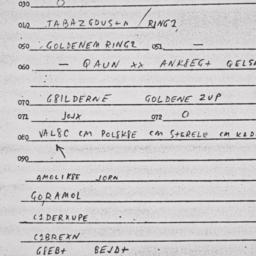 030 O
040 TABAZGDUS+A / RING2
050 GOLDENEM RING2 051 —
060 — QAUN XX ANK8EG+ GELS
070 G8ILDERNE GOLDENE ZUP
071 072 O
080 VAL8C CM POLSK8E CM S+ERELE CM
090
AMOLIK8E JORN
GO,RAMOL
C1DERXUPE
C1BREXN
G8EB+ BEJD+